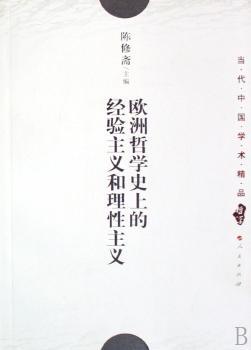 陈修斋
主编
欧洲哲学史上的
经验主义和理性主义
当·代·中·国·学·术·精·品
哲学
人民出版社
B